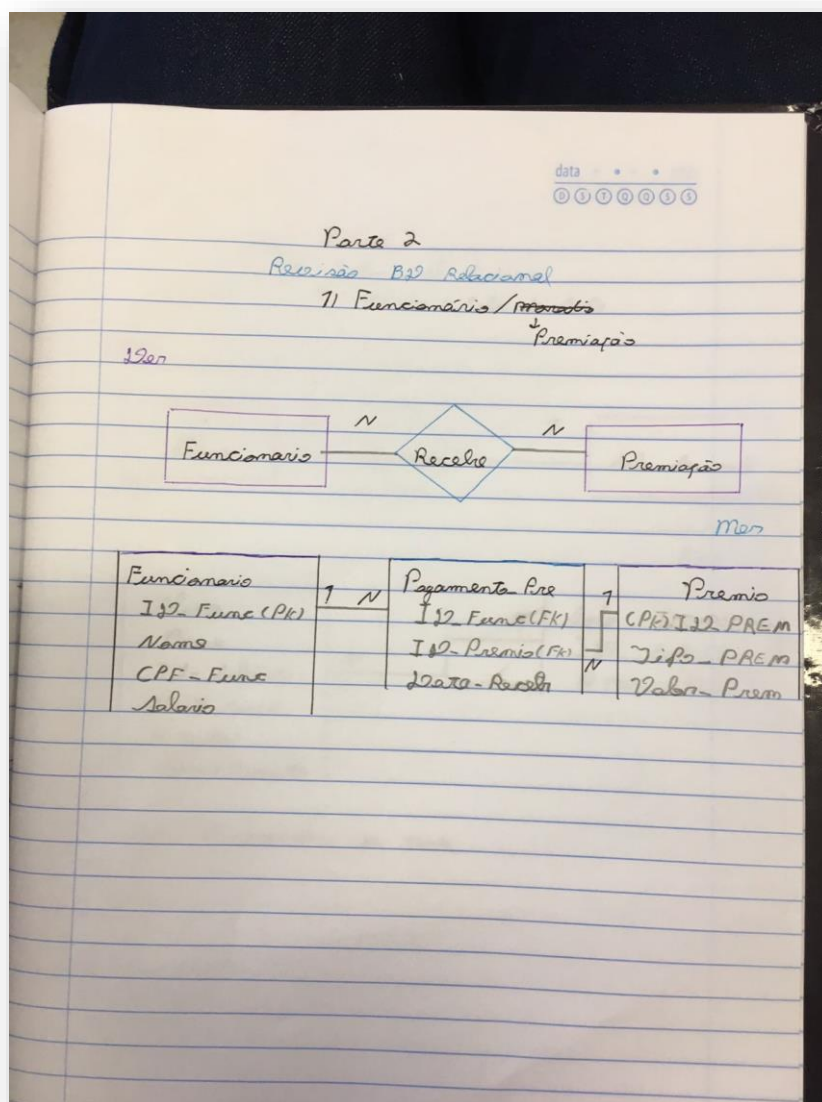 data
D S T Q Q S S
Parte 2
Revisão BD Relacional
1) Funcionário /
↓
Premiação
Der
Funcionario N Recebe N Premiação
Mer
Funcionario
ID_Func (PK)
Nome
CPF_Func
Salario
1 N
Pagamento Pre
ID_Func (FK)
ID_Premio (FK)
Data_Receb
1
N
Premio
(PK) ID_PREM
Tipo_PREM
Valor_Prem